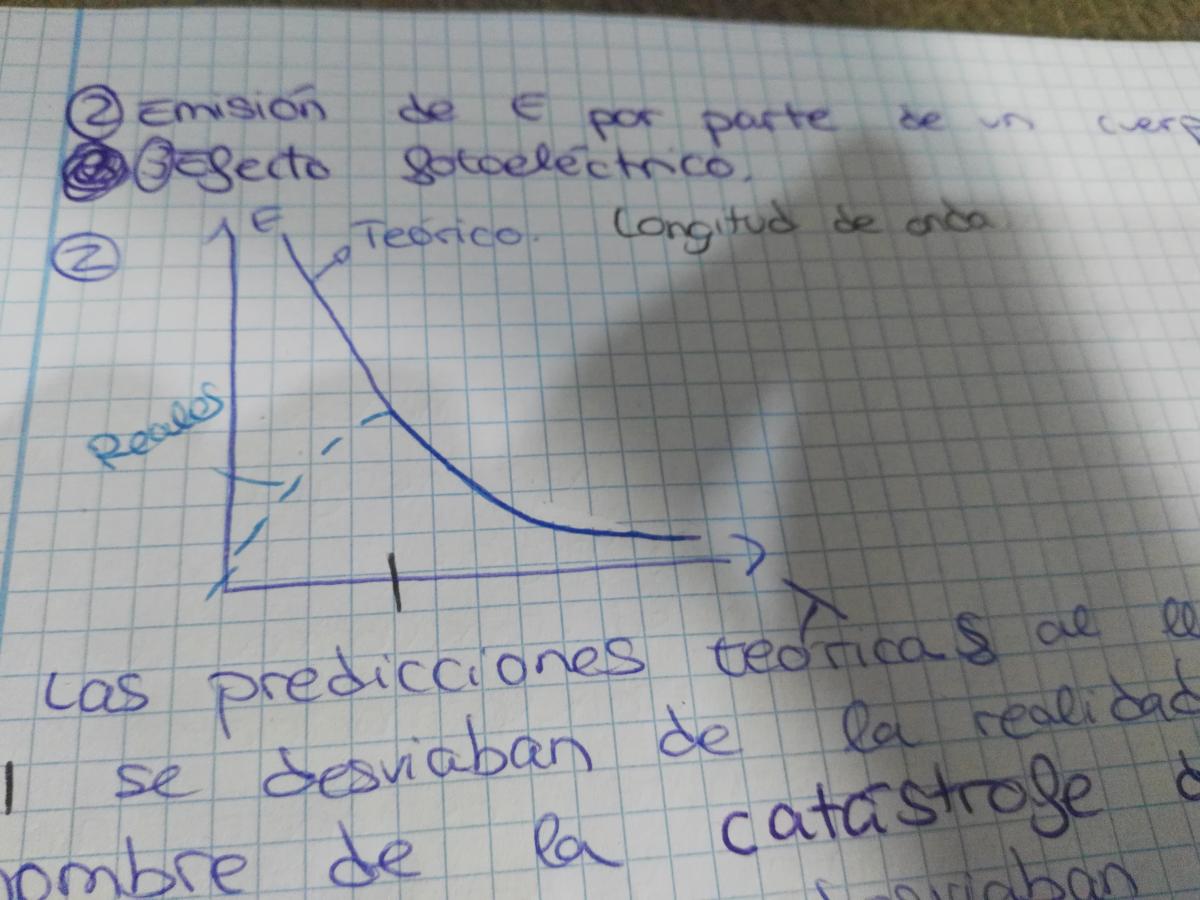 ② Emisión de E por parte de un cuerp
③ Efecto fotoeléctrico.
② E Teórico. Longitud de onda
Reales
λ
Las predicciones teóricas al
| se desviaban de la realidad
nombre de la catástrofe d
desviaban